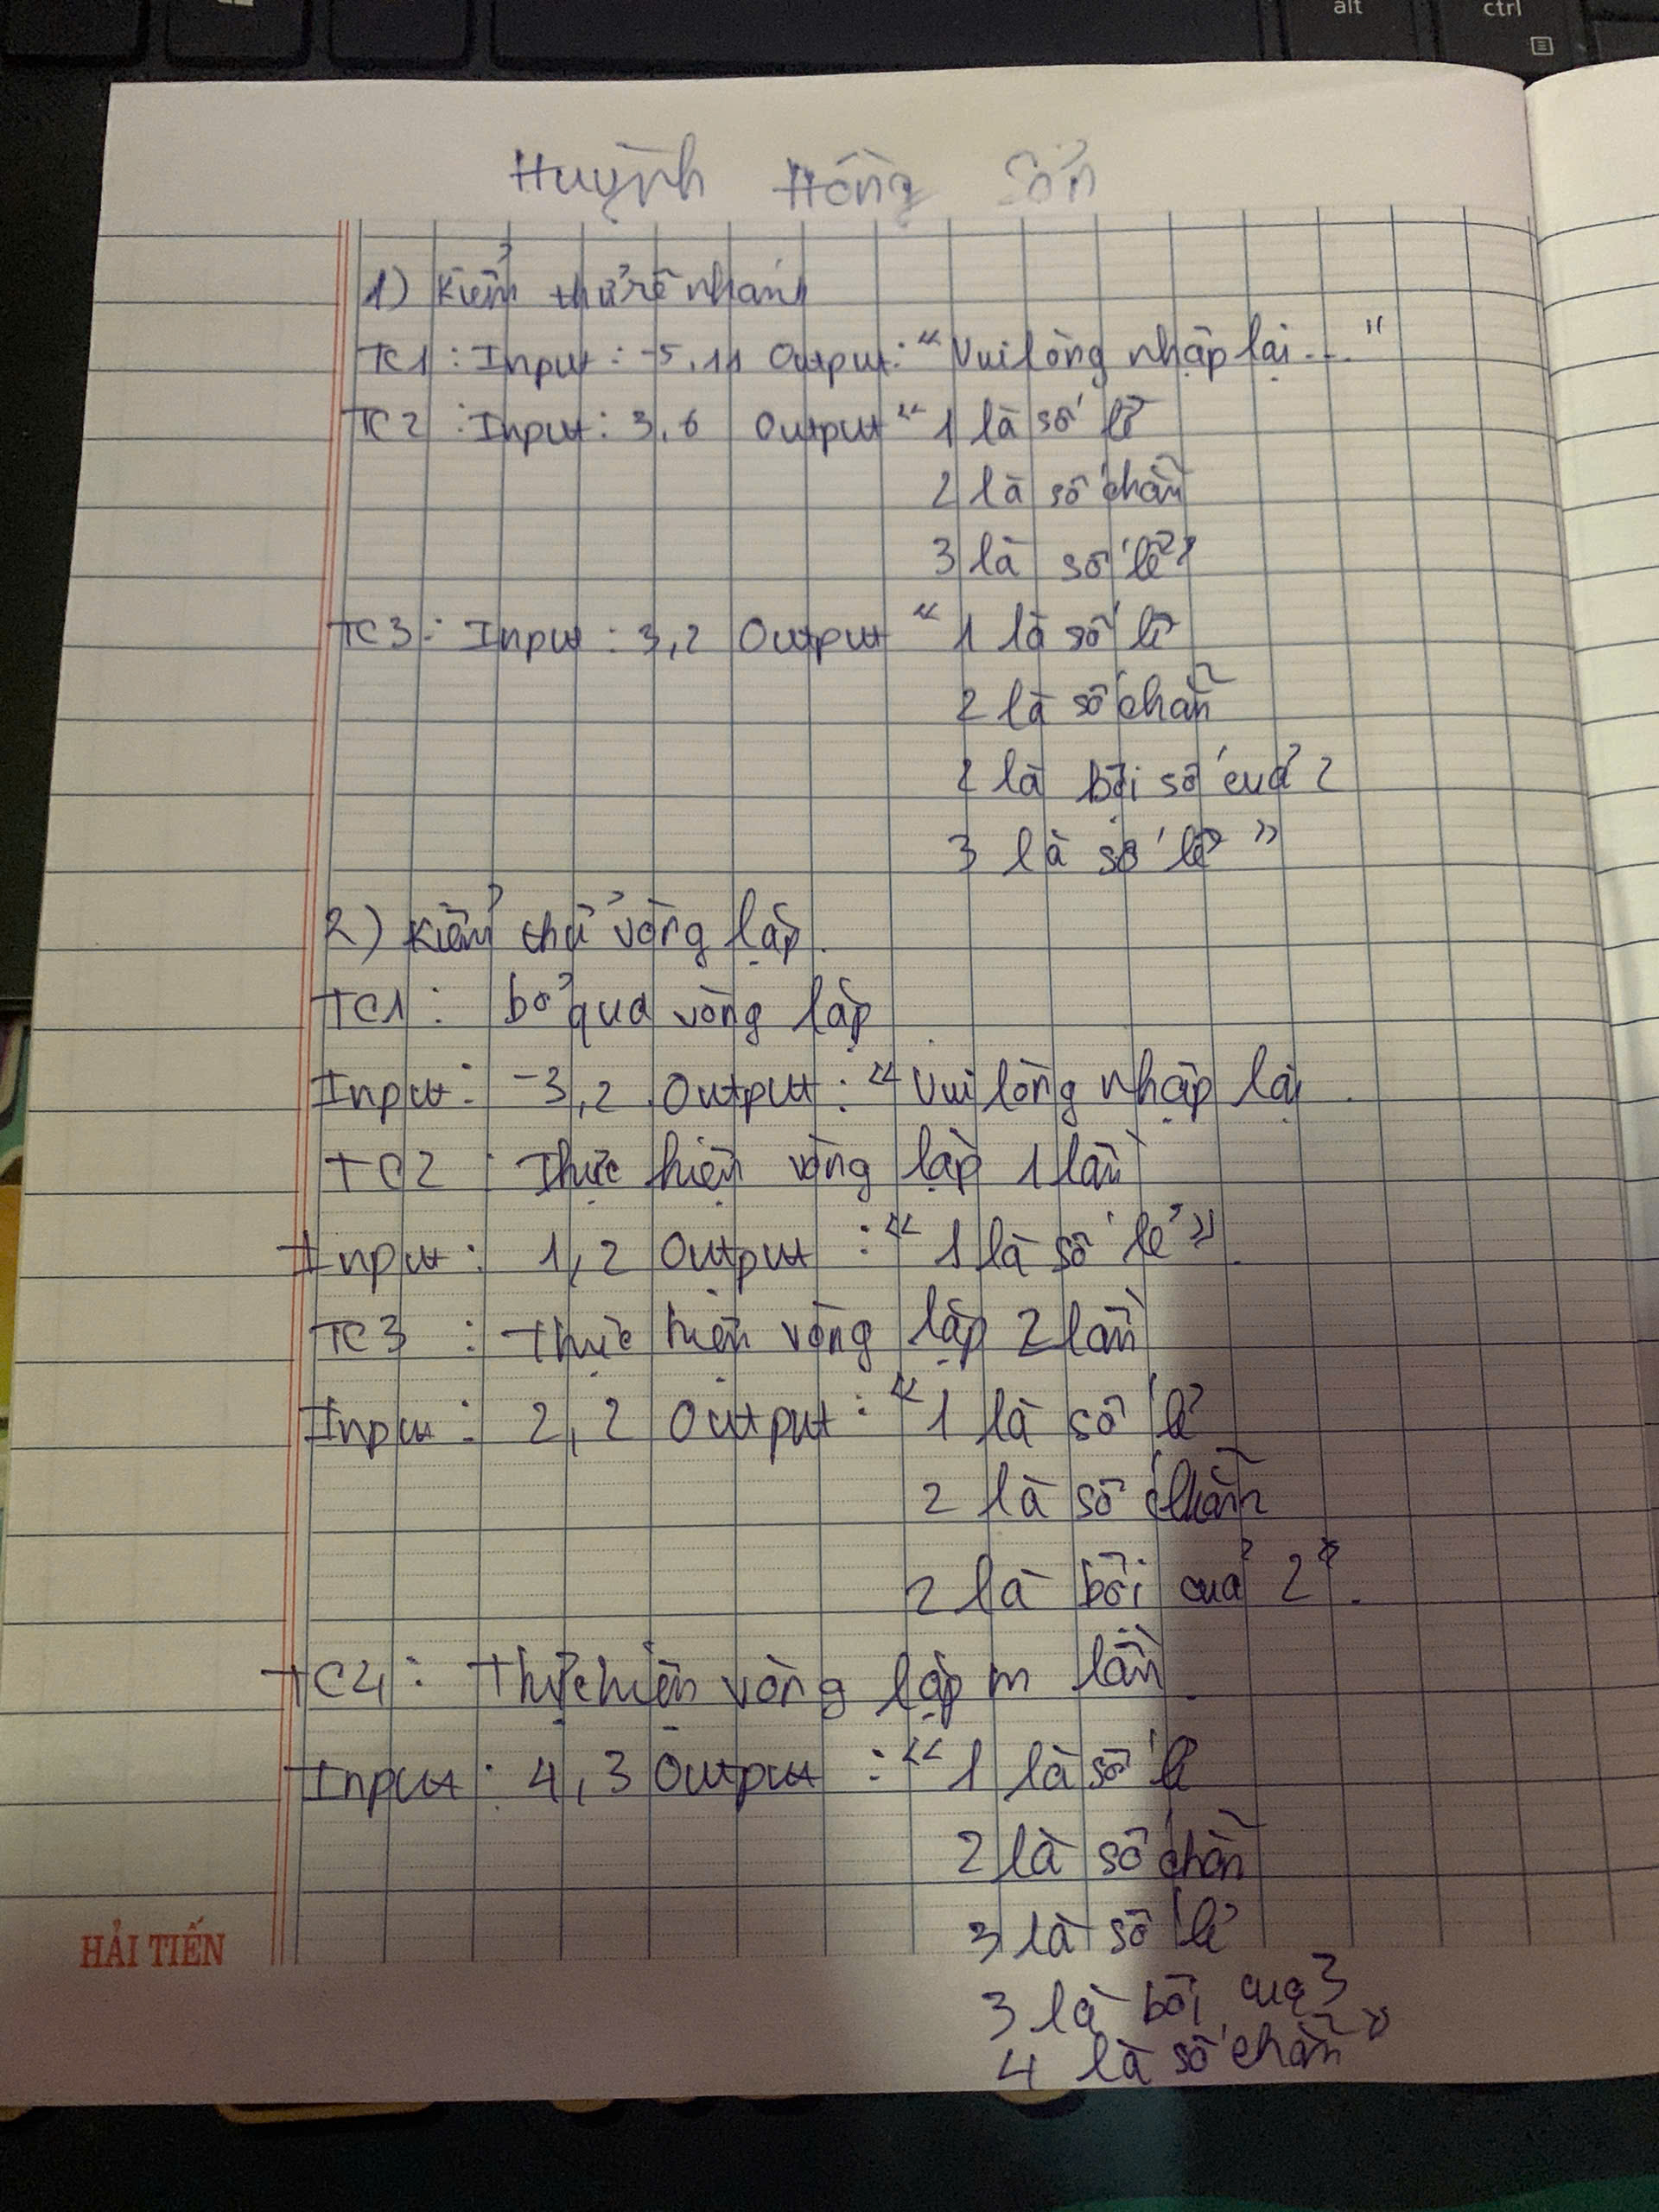 alt
ctrl
Huỳnh Hồng Sơn
1) Kiểm thử rẽ nhánh
TC1 : Input : -5, 11 Output: "Vui lòng nhập lại ..."
TC2 : Input : 3, 6 Output "1 là số lẻ
2 là số chẵn
3 là số lẻ"
TC3 : Input : 3, 2 Output "1 là số lẻ
2 là số chẵn
2 là bội số của 2
3 là số lẻ"
2) Kiểm thử vòng lặp.
TC1 : bỏ qua vòng lặp
Input : -3, 2 Output : "Vui lòng nhập lại
TC2 : Thực hiện vòng lặp 1 lần
Input : 1, 2 Output : "1 là số lẻ".
TC3 : Thực hiện vòng lặp 2 lần
Input : 2, 2 Output : "1 là số lẻ
2 là số chẵn
2 là bội của 2".
TC4 : Thực hiện vòng lặp m lần
Input : 4, 3 Output : "1 là số lẻ
2 là số chẵn
3 là số lẻ
3 là bội của 3
4 là số chẵn"
HẢI TIẾN